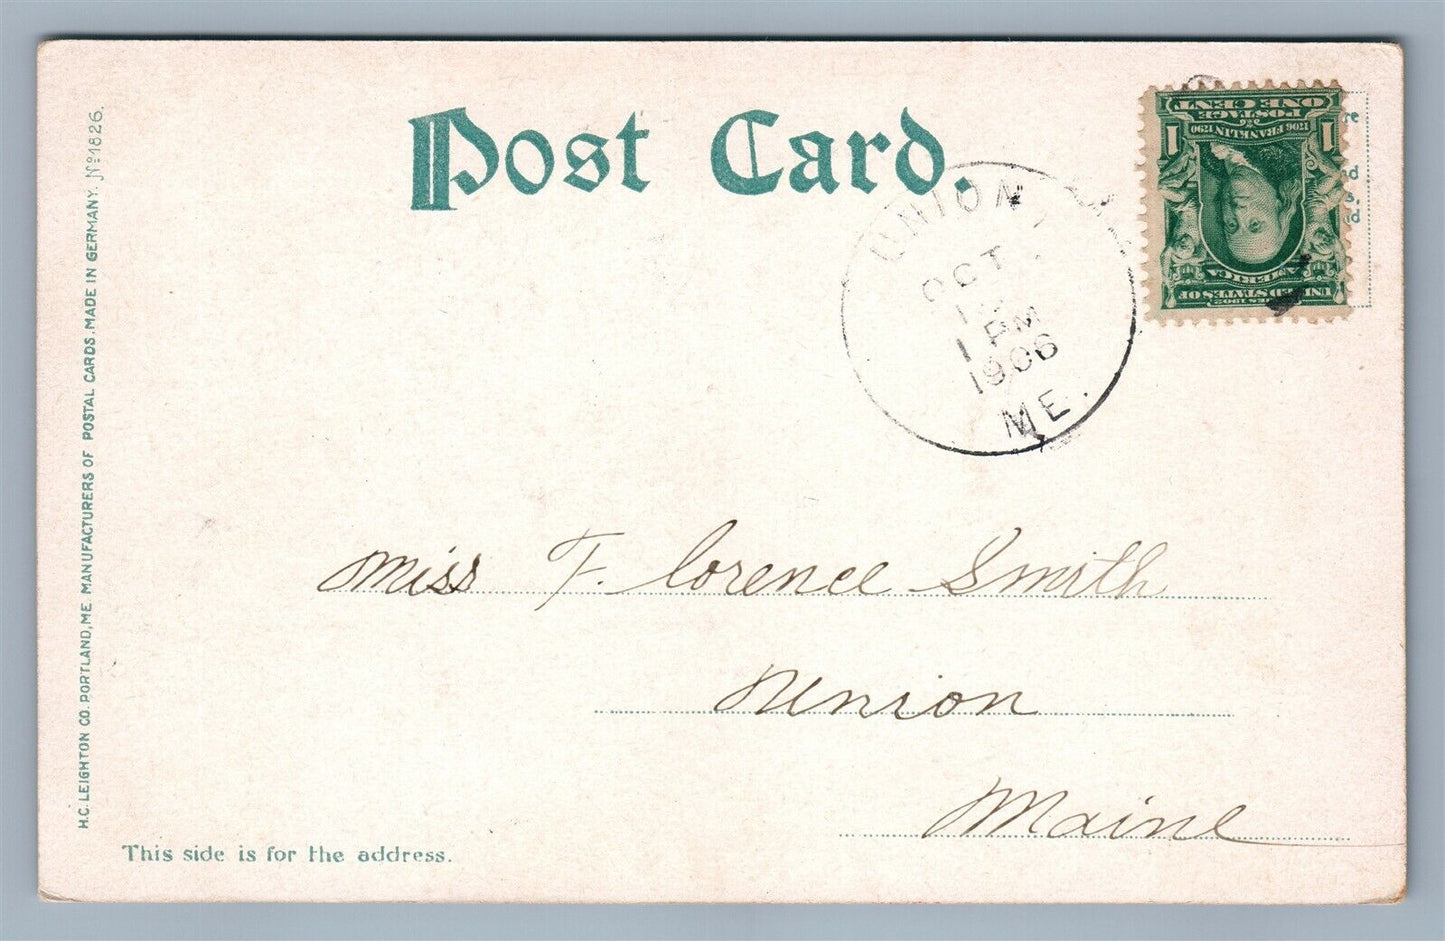 Post Card.
UNION
OCT
1 PM
1906
ME.
1 ONE CENT 1
POSTAGE
1706 FRANKLIN 1790
SERIES 1902
UNITED STATES OF
AMERICA
Miss F. lorence Smith
Union
Maine
This side is for the address.
H.C. LEIGHTON CO. PORTLAND, ME MANUFACTURERS OF POSTAL CARDS. MADE IN GERMANY. No 1826.